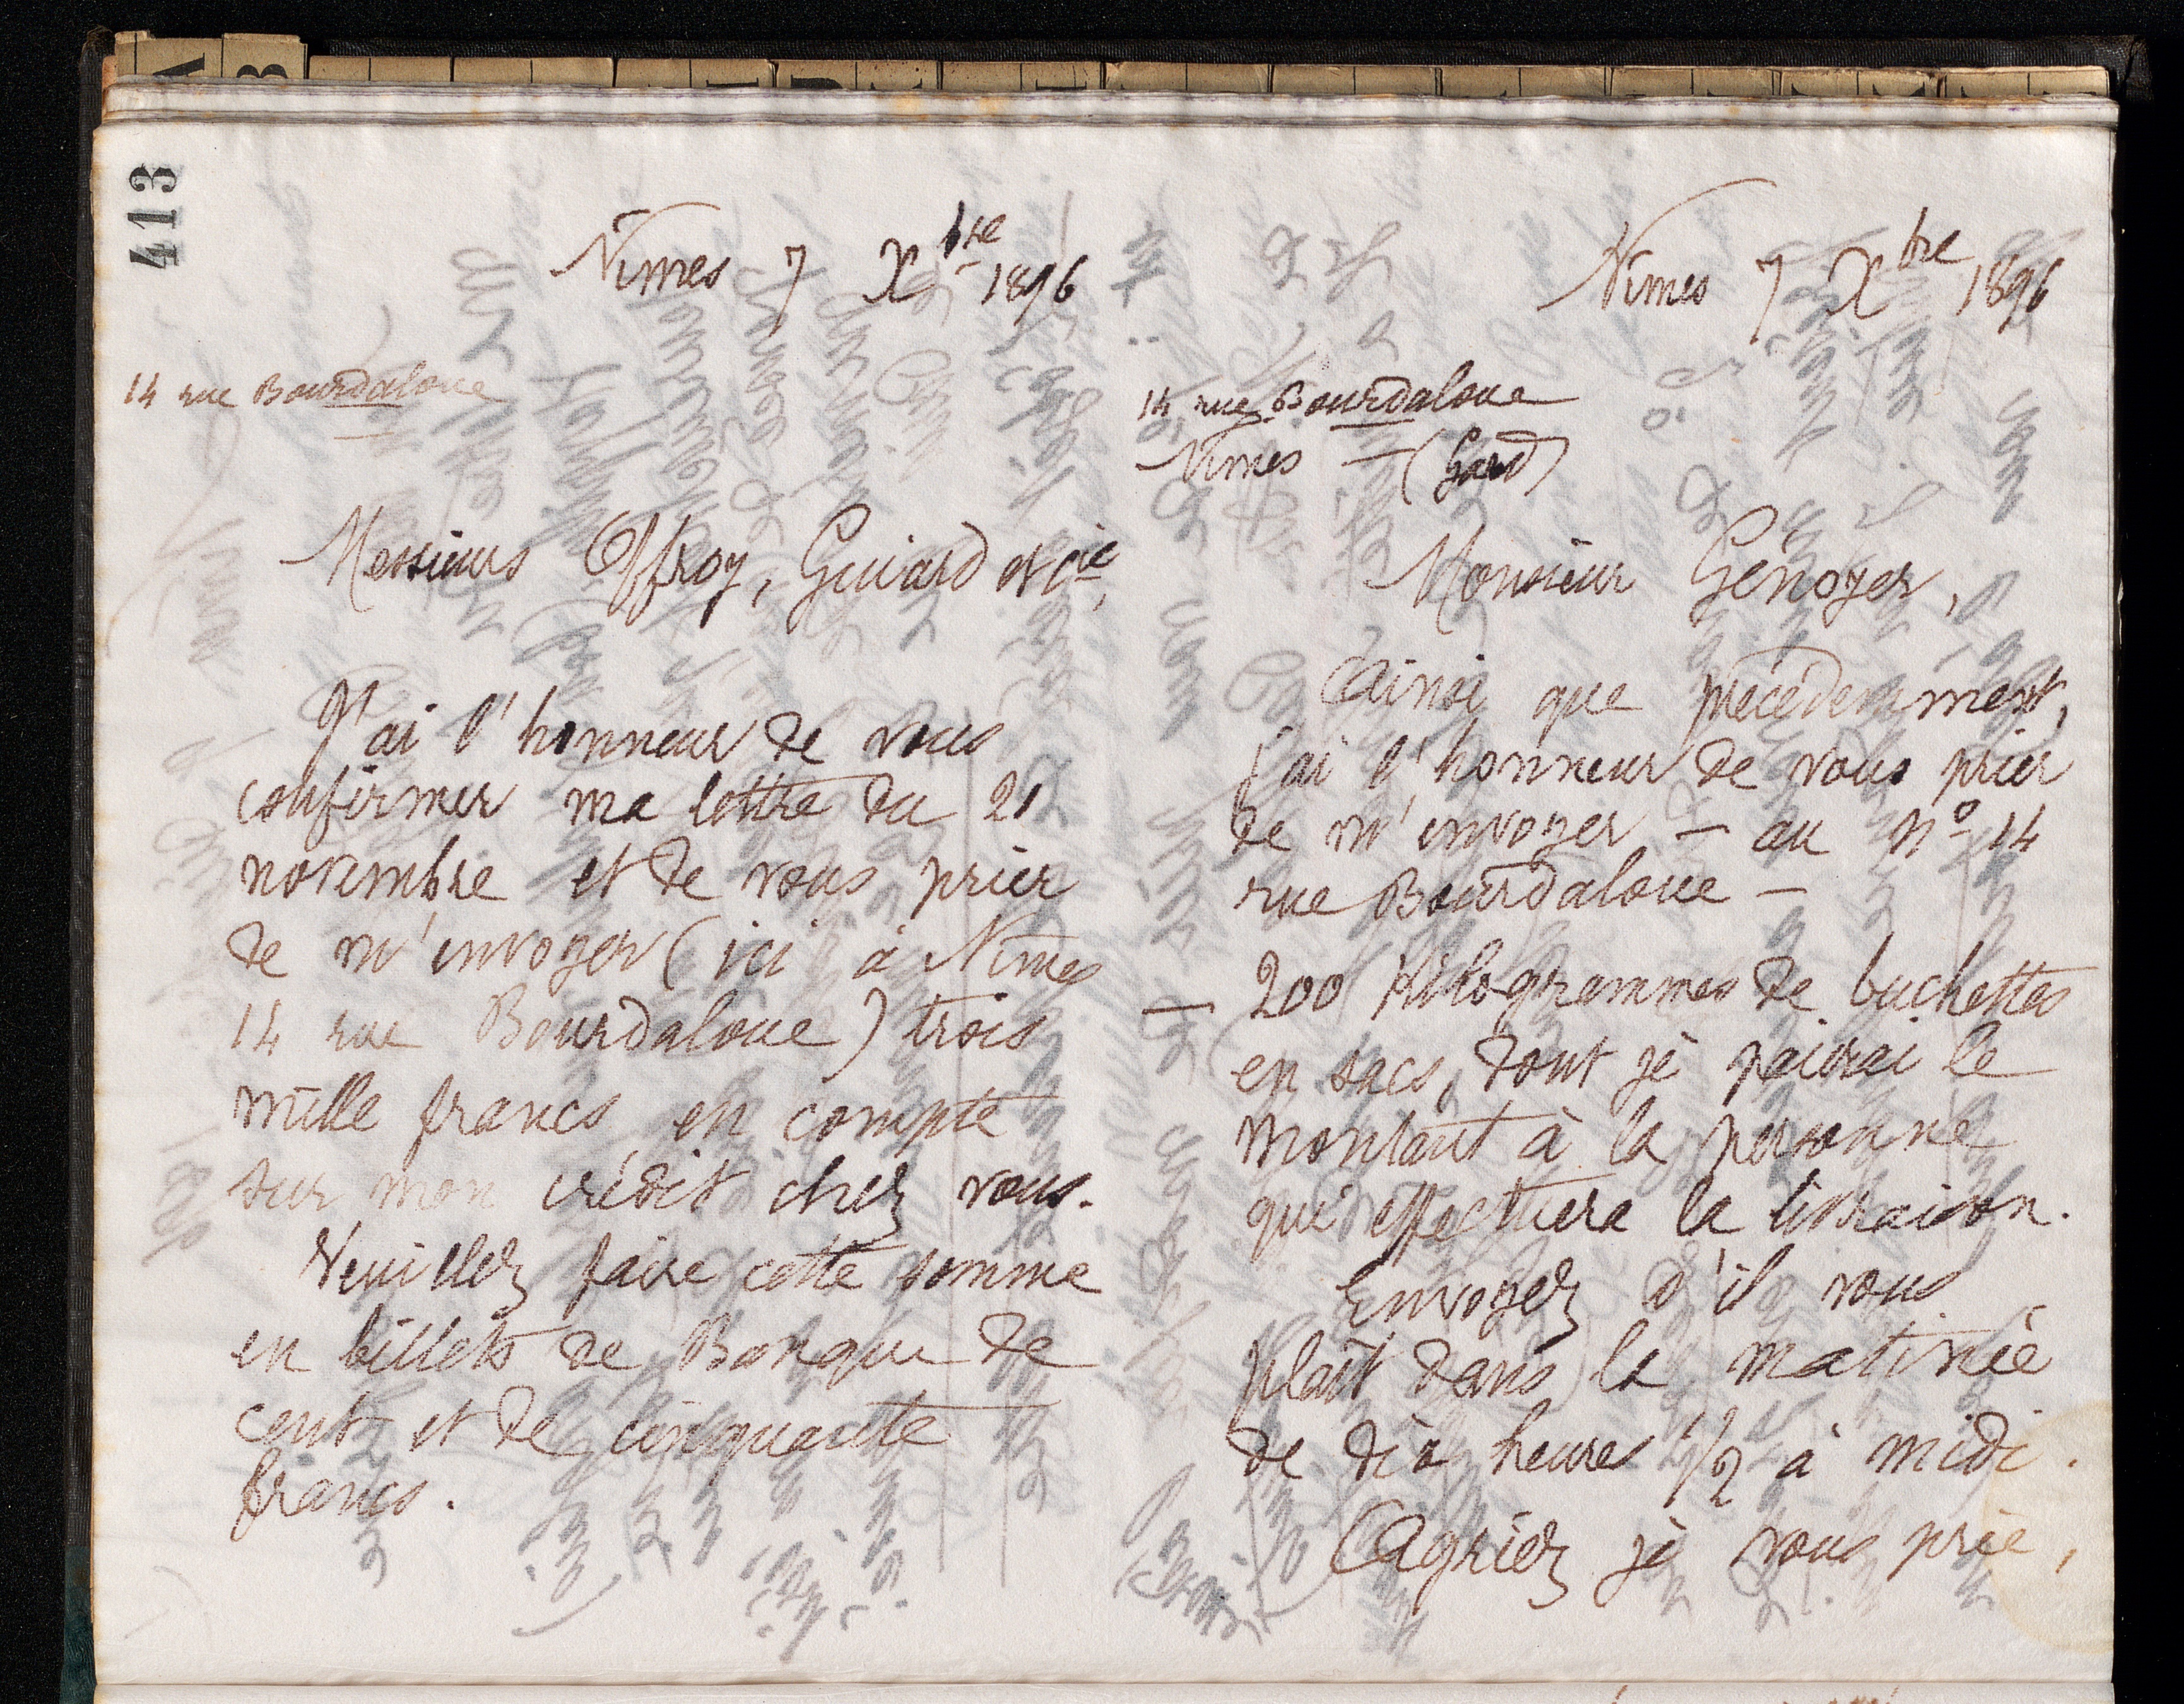 413
Nîmes 7 Xbre 1896
14 rue Bourdaloue
Messieurs Offroy, Guiard et Cie,
J'ai l'honneur de vous
confirmer ma lettre du 21
novembre et de vous prier
de m'envoyer (ici à Nîmes
14 rue Bourdaloue) trois
mille francs en compte
sur mon crédit chez vous.
Veuillez faire cette somme
en billets de Banque de
cent et de cinquante
francs.
Nîmes 7 Xbre 1896
14 rue Bourdaloue
Nîmes - (Gard)
Monsieur Génoyer,
Ainsi que précédemment,
j'ai l'honneur de vous prier
de m'envoyer - au No 14
rue Bourdaloue -
- 200 Kilogrammes de buchettes
en sacs, dont je paierai le
montant à la personne
qui effectuera la livraison.
Envoyez s'il vous
plaît dans la matinée
de dix heures 1/2 à midi.
Agréez je vous prie,